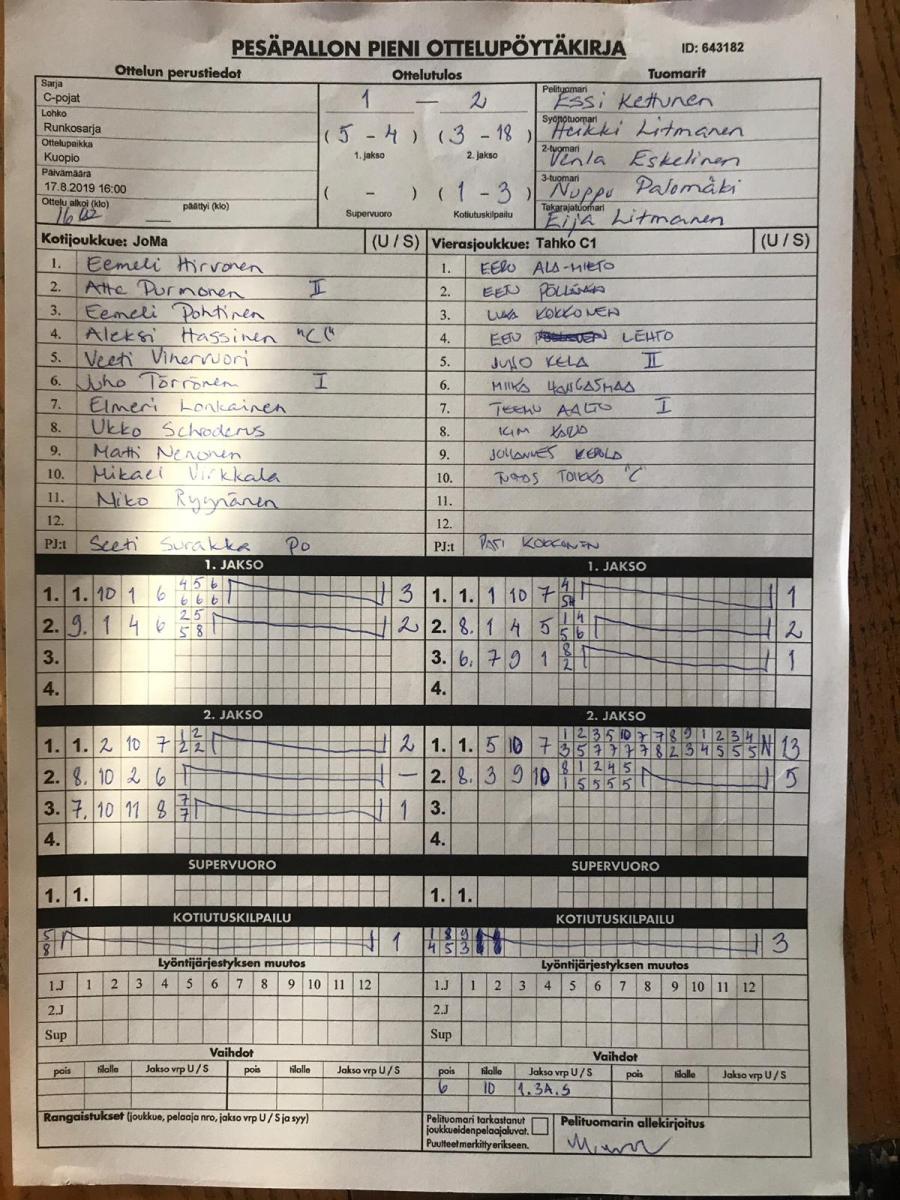 PESÄPALLON PIENI OTTELUPÖYTÄKIRJA ID: 643182
Ottelun perustiedot Ottelutulos Tuomarit
Sarja
C-pojat
Lohko
Runkosarja
Ottelupaikka
Kuopio
Päivämäärä
17.8.2019 16:00
Ottelu alkoi (klo) päättyi (klo)
16 02
1 — 2
( 5 - 4 ) ( 3 - 18 )
1. jakso 2. jakso
( - ) ( 1 - 3 )
Supervuoro Kotiutuskilpailu
Pelituomari
Essi Kettunen
Syöttötuomari
Heikki Litmanen
2-tuomari
Venla Eskelinen
3-tuomari
Nuppu Palomäki
Takarajatuomari
Eija Litmanen
Kotijoukkue: JoMa (U / S)
1. Eemeli Hirvonen
2. Atte Purmonen II
3. Eemeli Pohtinen
4. Aleksi Hassinen "C"
5. Veeti Vihervuori
6. Juho Törrönen I
7. Elmeri Lonkainen
8. Ukko Schroderus
9. Matti Neronen
10. Mikael Virkkala
11. Niko Ryynänen
12.
PJ:t Seeti Surakka Po
Vierasjoukkue: Tahko C1 (U / S)
1. EERO ALA-HIETO
2. EETU
3. KOKKONEN
4. EETU LEHTO
5. JUHO KELA II
6. MIIKA
7. TEEMU AALTO I
8. KIM
9. JOHANNES KEROLA
10. TOIKKA "C"
11.
12.
PJ:t PASI KOKKONEN
1. JAKSO
1. 1. 10 1 6 4 5 6 3
6 6 6
2. 9. 1 4 6 2 5 2
5 8
3.
4.
1. JAKSO
1. 1. 1 10 7 4 1
5H
2. 8. 1 4 5 1 4 2
5 6
3. 6. 7 9 1 8 1
2
4.
2. JAKSO
1. 1. 2 10 7 1 2 2
2 2
2. 8. 10 2 6 —
3. 7. 10 11 8 7 1
7
4.
2. JAKSO
1. 1. 5 10 7 1 2 3 5 10 7 7 8 9 1 2 3 4 N 13
3 5 7 7 7 7 8 2 3 4 5 5 5
2. 8. 3 9 10 8 1 2 4 5 5
1 5 5 5 5
3.
4.
SUPERVUORO
1. 1.
SUPERVUORO
1. 1.
KOTIUTUSKILPAILU
5 1
8
KOTIUTUSKILPAILU
1 8 9 3
4 5 3
Lyöntijärjestyksen muutos
1.J 1 2 3 4 5 6 7 8 9 10 11 12
2.J
Sup
Lyöntijärjestyksen muutos
1.J 1 2 3 4 5 6 7 8 9 10 11 12
2.J
Sup
Vaihdot
pois tilalle Jakso vrp U / S pois tilalle Jakso vrp U / S
Vaihdot
pois tilalle Jakso vrp U / S pois tilalle Jakso vrp U / S
6 10 1.3A.S
Rangaistukset (joukkue, pelaaja nro, jakso vrp U / S ja syy)
Pelituomari tarkastanut
joukkueidenpelaajaluvat.
Puutteet merkitty erikseen.
Pelituomarin allekirjoitus